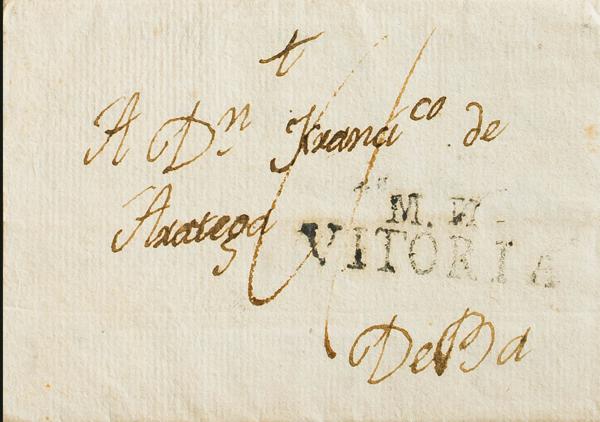 A Dⁿ Franciᶜᵒ de
Arategá
M. N.
VITORIA
DeBa